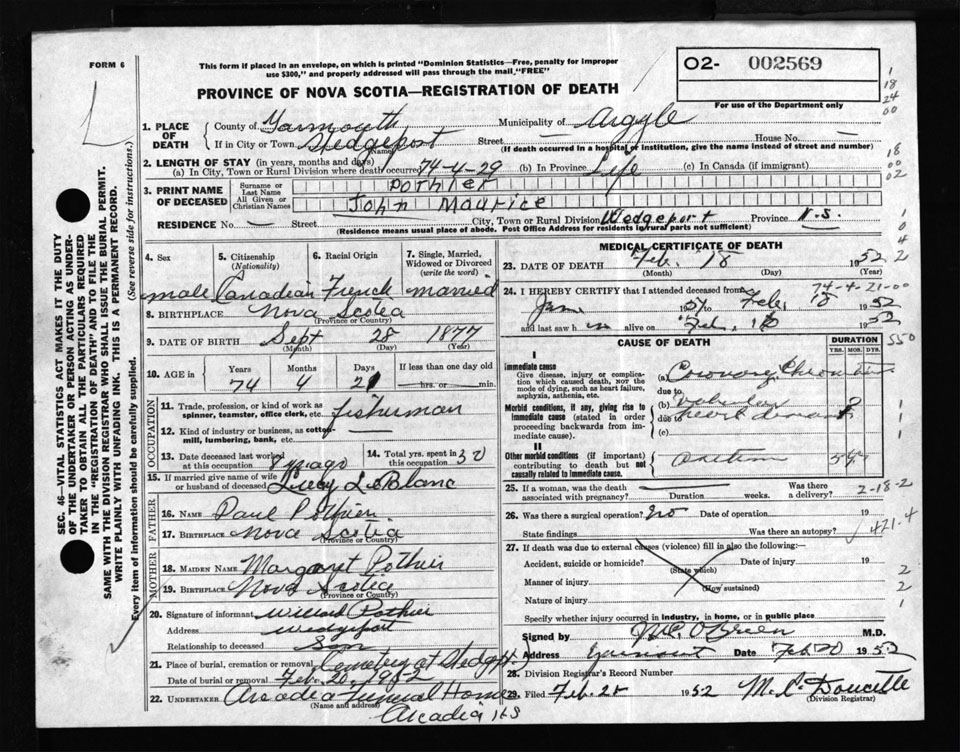 FORM 6
This form if placed in an envelope, on which is printed "Dominion Statistics—Free, penalty for improper
use $300," and properly addressed will pass through the mail "FREE"
O2- 002569
For use of the Department only
PROVINCE OF NOVA SCOTIA—REGISTRATION OF DEATH
1. PLACE OF DEATH County of Yarmouth Municipality of Argyle
If in City or Town Wedgeport Street House No. —
(Name) (If death occurred in a hospital or institution, give the name instead of street and number)
2. LENGTH OF STAY (in years, months and days)
(a) In City, Town or Rural Division where death occurred 74-4-29 (b) In Province Life (c) In Canada (if immigrant)
3. PRINT NAME OF DECEASED Surname or Last Name Pothier
All Given or Christian Names John Maurice
RESIDENCE No. — Street City, Town or Rural Division Wedgeport Province N.S.
(Residence means usual place of abode. Post Office Address for residents in rural parts not sufficient)
4. Sex 5. Citizenship (Nationality) 6. Racial Origin 7. Single, Married, Widowed or Divorced (write the word)
male Canadian French married
8. BIRTHPLACE Nova Scotia
(Province or Country)
9. DATE OF BIRTH Sept 28 1877
(Month) (Day) (Year)
10. AGE in Years Months Days If less than one day old
74 4 21 hrs. or min.
OCCUPATION
11. Trade, profession, or kind of work as
spinner, teamster, office clerk, etc. fisherman
12. Kind of industry or business, as cotton-
mill, lumbering, bank, etc.
13. Date deceased last worked at this occupation 8 yr ago 14. Total yrs. spent in this occupation 30
15. If married give name of wife or husband of deceased Lucy LeBlanc
FATHER
16. NAME Paul Pothier
17. BIRTHPLACE Nova Scotia
(Province or Country)
MOTHER
18. MAIDEN NAME Margaret Pothier
19. BIRTHPLACE Nova Scotia
(Province or Country)
20. Signature of informant Willard Pothier
Address Wedgeport
Relationship to deceased Son
21. Place of burial, cremation or removal Cemetery at Wedgpt
Date of burial or removal Feb. 20, 1952
22. UNDERTAKER Arcadia Funeral Home
(Name and address)
Arcadia N S
MEDICAL CERTIFICATE OF DEATH
23. DATE OF DEATH Feb. 18 1952
(Month) (Day) (Year)
74-4-21-00
24. I HEREBY CERTIFY that I attended deceased from
Jan 1951 Feb 18 1952
and last saw him alive on Feb. 1952
CAUSE OF DEATH DURATION
YRS. MOS. DYS.
I
Immediate cause
Give disease, injury or complication which caused death, NOT the
mode of dying, such as heart failure,
asphyxia, asthenia, etc.
(a) Coronary Thrombosis
due to
Morbid conditions, if any, giving rise to
immediate cause (stated in order
proceeding backwards from immediate cause).
(b) Valvular
due to heart disease
(c)
II
Other morbid conditions (if important)
contributing to death but not
causally related to immediate cause.
25. If a woman, was the death associated with pregnancy? Duration weeks. Was there a delivery?
2-18-2
26. Was there a surgical operation? no Date of operation 19
State findings Was there an autopsy?
421.4
27. If death was due to external causes (violence) fill in also the following:—
Accident, suicide or homicide? Date of injury 19
(State which)
Manner of injury
(How sustained)
Nature of injury
Specify whether injury occurred in industry, in home, or in public place
Signed by M.C. O'Brien M.D.
Address Yarmouth Date Feb 20 1952
28. Division Registrar's Record Number
29. Filed Feb. 28 1952 M. C. Doucette
(Division Registrar)
SEC. 46—VITAL STATISTICS ACT MAKES IT THE DUTY
OF THE UNDERTAKER OR PERSON ACTING AS UNDERTAKER
TO OBTAIN ALL THE PARTICULARS REQUIRED
IN THE "REGISTRATION OF DEATH" AND TO FILE THE
SAME WITH THE DIVISION REGISTRAR WHO SHALL ISSUE THE BURIAL PERMIT.
WRITE PLAINLY WITH UNFADING INK. THIS IS A PERMANENT RECORD.
Every item of information should be carefully supplied. (See reverse side for instructions.)